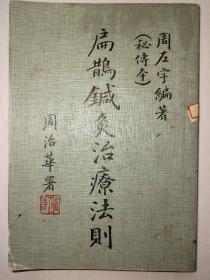 周左宇編著
(秘傳本)
扁鵲鍼灸治療法則
周治華署